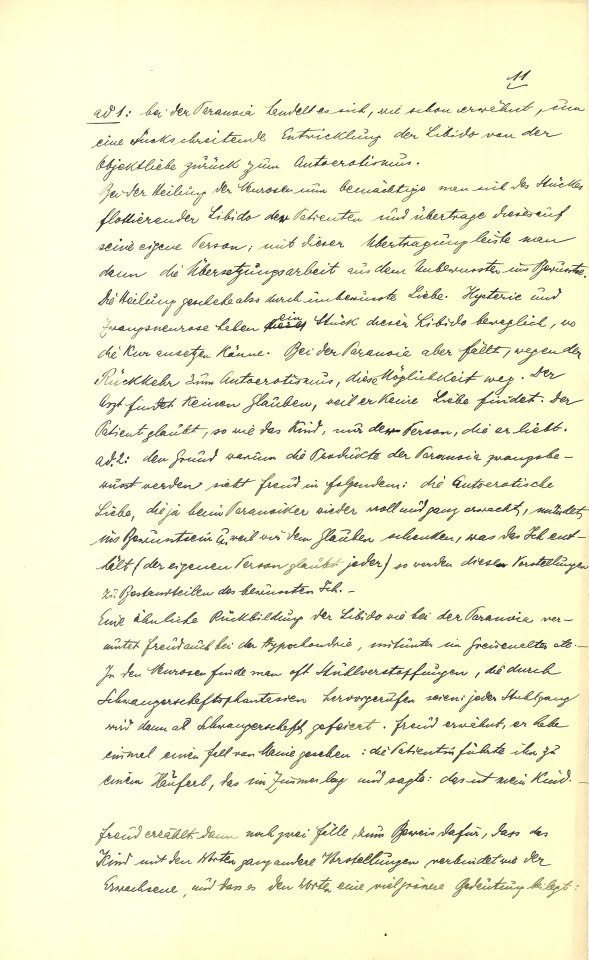 11
ad 1: bei der Paranoia handelt es sich, wie schon erwähnt, um
eine rückschreitende Entwicklung der Libido von der
Objektliebe zurück zum Autoerotismus.
Bei der Heilung der Neurosen nun bemächtige man sich des Stückes
flottierender Libido der Patienten und übertrage dieses auf
seine eigene Person; mit dieser Übertragung leiste man
dann die Übersetzungsarbeit aus dem Unbewussten ins Bewusste.
Die Heilung geschehe also durch unbewusste Liebe. Hysterie und
Zwangsneurose haben ein Stück dieser Libido beweglich, wo
die Kur ansetzen könne. Bei der Paranoia aber fällt, wegen der
Rückkehr zum Autoerotismus, diese Möglichkeit weg. Der
Arzt findet keinen Glauben, weil er keine Liebe findet. Der
Patient glaubt, so wie das Kind, nur der Person, die er liebt.
ad 2: den Grund warum die Produkte der Paranoia zwangsbe-
wusst werden sieht Freud in folgendem: die Autoerotische
Liebe, die ja beim Paranoiker wieder voll und ganz erwacht, mündet
ins Bewusstsein u. weil wir dem Glauben schenken, was das Ich ent-
hält (der eigenen Person glaubt jeder) so werden diese Vorstellungen
zu Bestandteilen des bewussten Ich. -
Eine ähnliche Rückbildung der Libido wie bei der Paranoia ver-
mutet Freud auch bei der Hypochondrie, mitunter im Greisenalter etc. -
In den Neurosen finde man oft Stuhlverstopfungen, die durch
Schwangerschaftsphantasien hervorgerufen seien: jeder Stuhlgang
wird dann als Schwangerschaft gefeiert. Freud erwähnt, er habe
einmal einen Fall von Manie gesehen: die Patientin führte ihn zu
einem Häuferl, das im Zimmer lag und sagte: das ist mein Kind. -
Freud erzählt dann noch zwei Fälle, zum Beweis dafür, dass das
Kind mit den Worten ganz andere Vorstellungen verbindet wie der
Erwachsene, und dass es den Worten eine viel grössere Bedeutung beilegt: